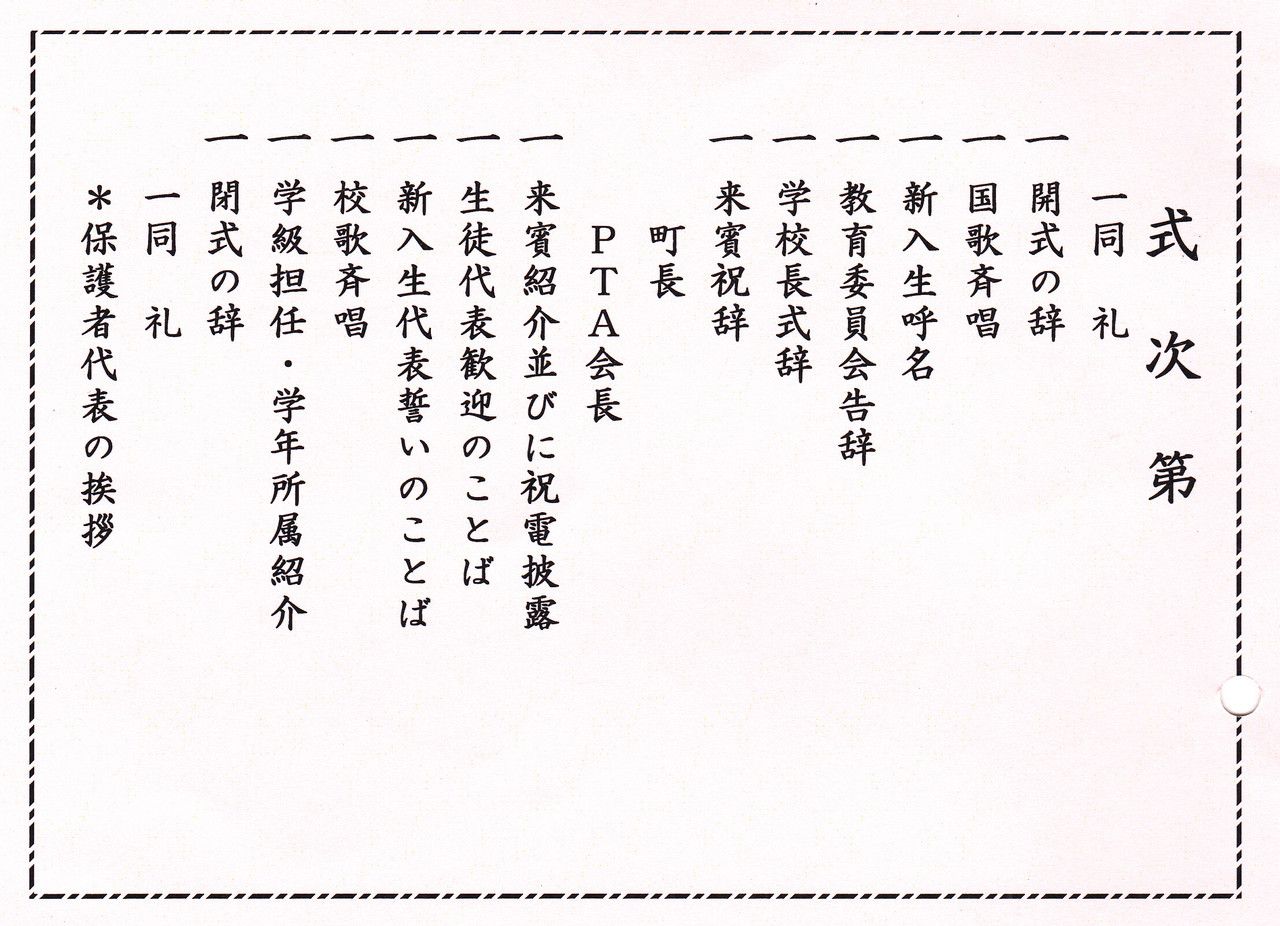 式次第
一同　礼
一　開式の辞
一　国歌斉唱
一　新入生呼名
一　教育委員会告辞
一　学校長式辞
一　来賓祝辞
町長
ＰＴＡ会長
一　来賓紹介並びに祝電披露
一　生徒代表歓迎のことば
一　新入生代表誓いのことば
一　校歌斉唱
一　学級担任・学年所属紹介
一　閉式の辞
一同　礼
＊保護者代表の挨拶